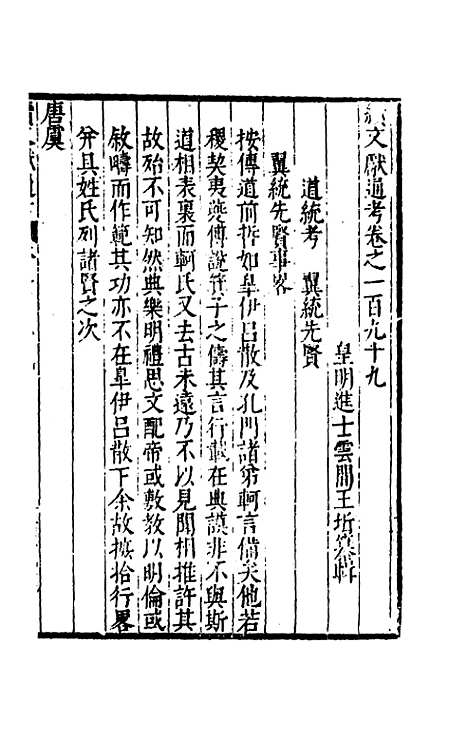 續文獻通考卷之一百九十九
皇明進士雲間王圻纂輯
道統考　翼統先賢
翼統先賢事畧
按傳道前哲如皐伊呂散及孔門諸弟軻言備矣他若
稷契夷夔傅說箕子之儔其言行載在典謨非不與斯
道相表裏而軻氏又去古未遠乃不以見聞相推許其
故殆不可知然典樂明禮思文配帝或敷教以明倫或
敘疇而作範其功亦不在皐伊呂散下余故摭拾行畧
并具姓氏列諸賢之次
唐虞